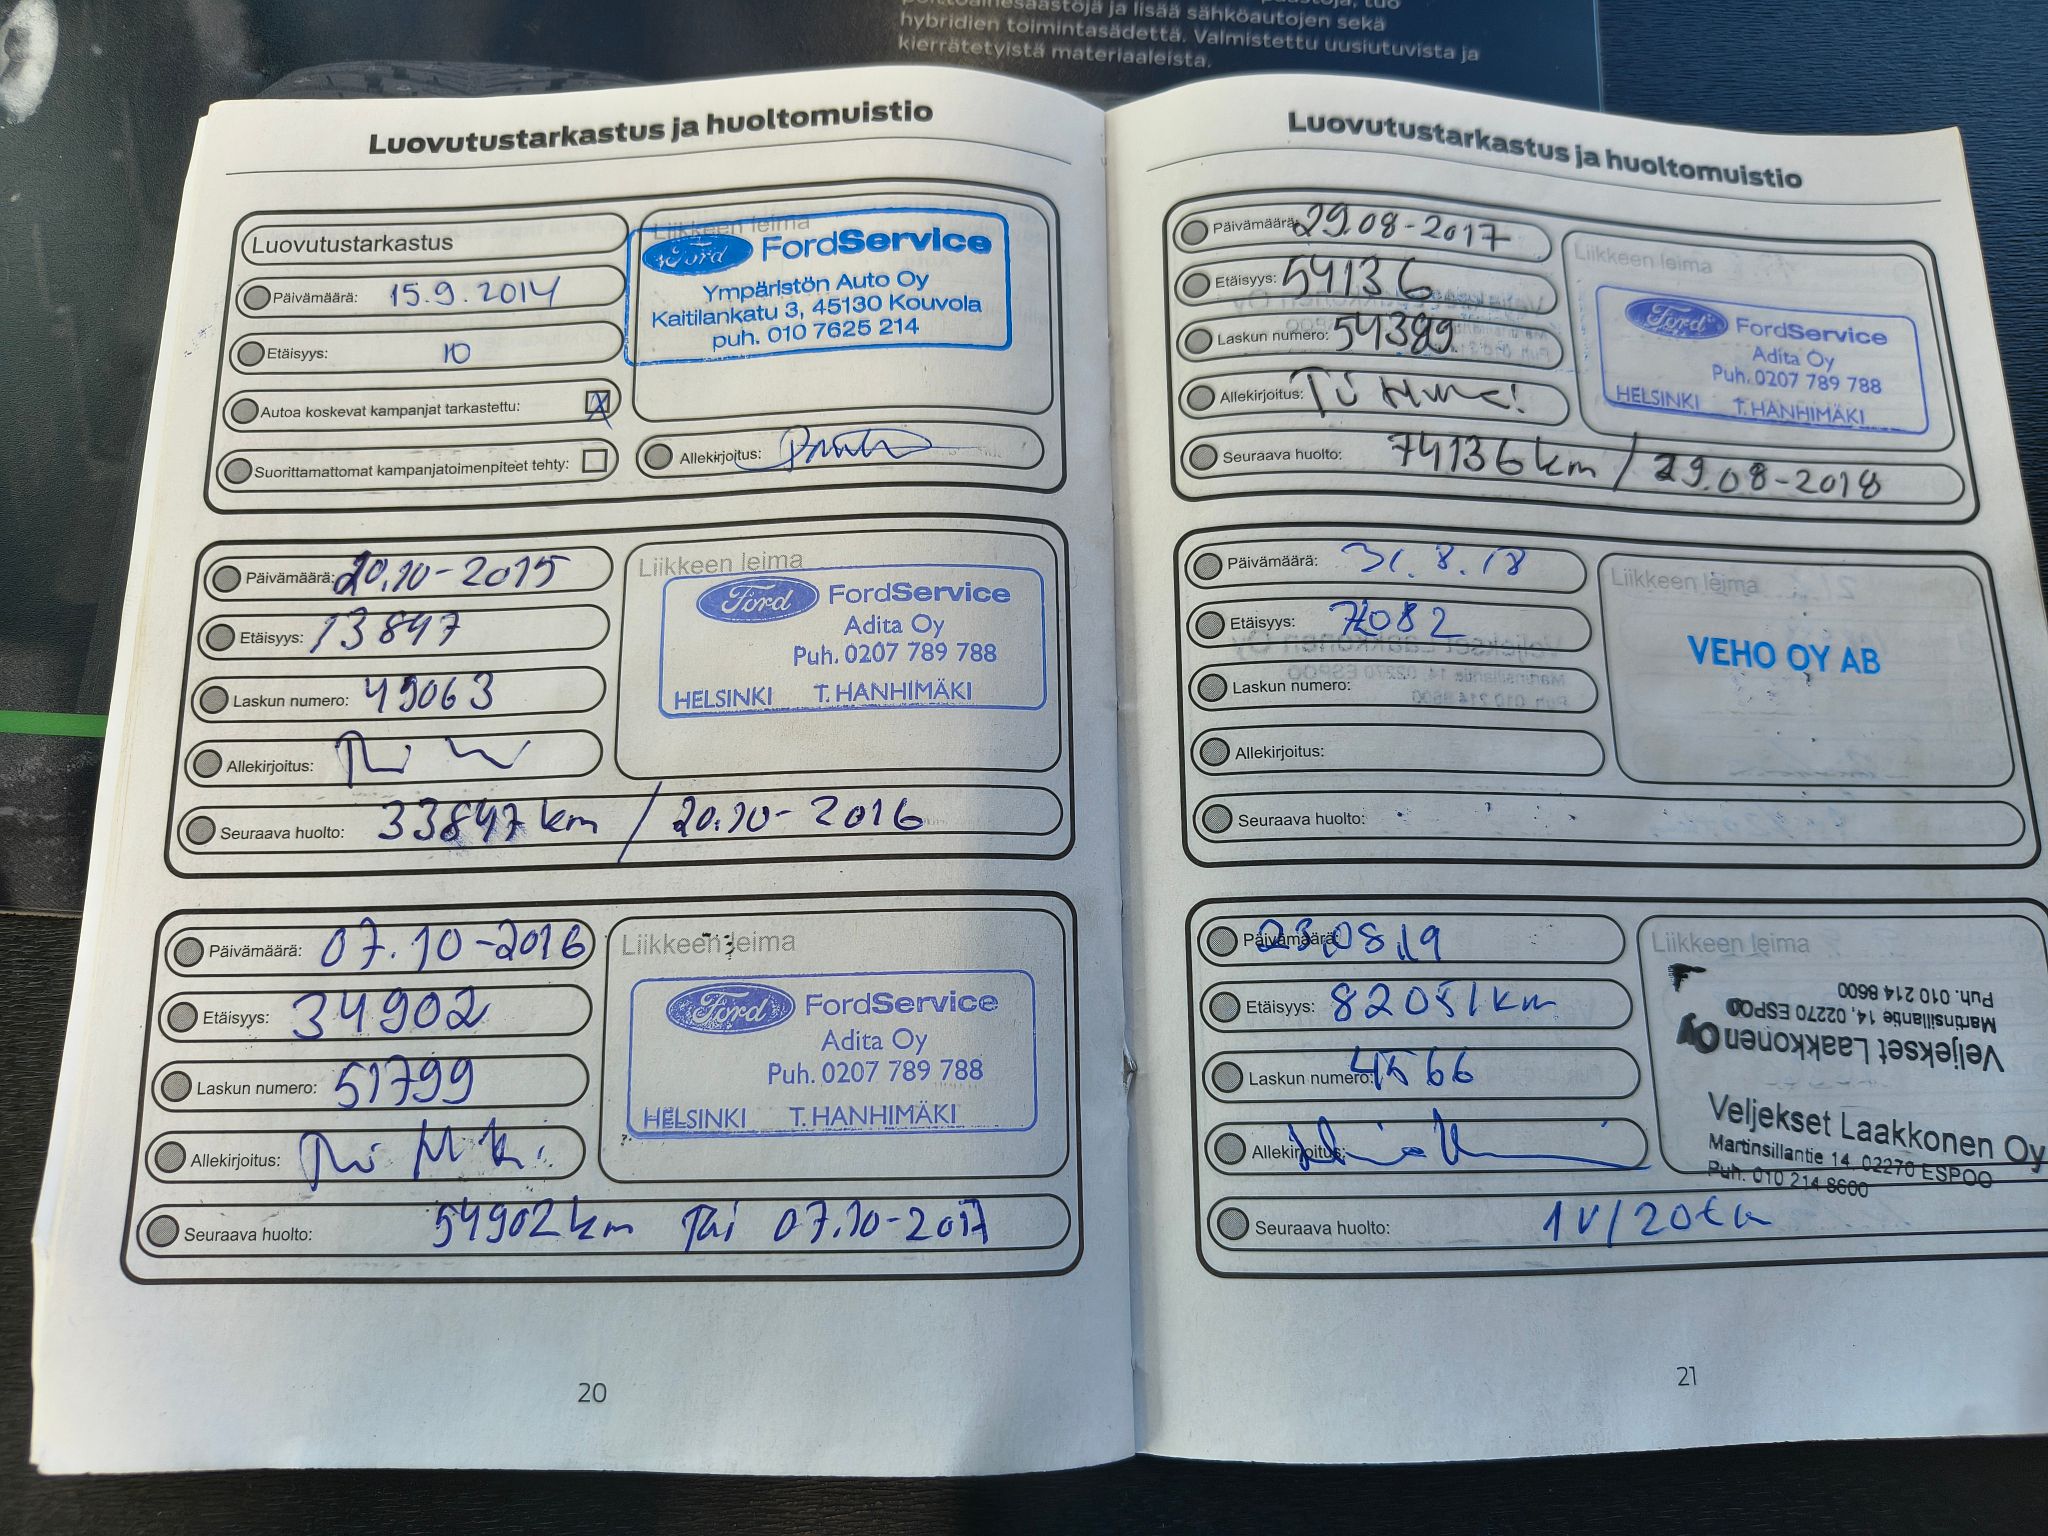 hybridien toimintasädettä. Valmistettu uusiutuvista ja
kierrätetyistä materiaaleista.
Luovutustarkastus ja huoltomuistio
Luovutustarkastus
Päivämäärä: 15.9.2014
Etäisyys: 10
Autoa koskevat kampanjat tarkastettu: X
Suorittamattomat kampanjatoimenpiteet tehty:
Liikkeen leima
Ford FordService
Ympäristön Auto Oy
Kaitilankatu 3, 45130 Kouvola
puh. 010 7625 214
Allekirjoitus:
Päivämäärä: 20.10-2015
Etäisyys: 13897
Laskun numero: 49063
Allekirjoitus:
Liikkeen leima
Ford FordService
Adita Oy
Puh. 0207 789 788
HELSINKI T. HANHIMÄKI
Seuraava huolto: 33897 km / 20.10-2016
Päivämäärä: 07.10-2016
Etäisyys: 34902
Laskun numero: 51799
Allekirjoitus:
Liikkeen leima
Ford FordService
Adita Oy
Puh. 0207 789 788
HELSINKI T. HANHIMÄKI
Seuraava huolto: 54902 km Tai 07.10-2017
20
Luovutustarkastus ja huoltomuistio
Päivämäärä: 29.08-2017
Etäisyys: 54136
Laskun numero: 54399
Allekirjoitus:
Liikkeen leima
Ford FordService
Adita Oy
Puh. 0207 789 788
HELSINKI T. HANHIMÄKI
Seuraava huolto: 74136 km / 29.08-2018
Päivämäärä: 31.8.18
Etäisyys:
Laskun numero:
Allekirjoitus:
Liikkeen leima
VEHO OY AB
Seuraava huolto:
Päivämäärä: 23.08.19
Etäisyys: 82051 km
Laskun numero: 4566
Allekirjoitus:
Liikkeen leima
Veljekset Laakkonen Oy
Martinsillantie 14, 02270 ESPOO
Puh. 010 214 8600
Veljekset Laakkonen Oy
Martinsillantie 14, 02270 ESPOO
Puh. 010 214 8600
Seuraava huolto: 1 v/20tkm
21